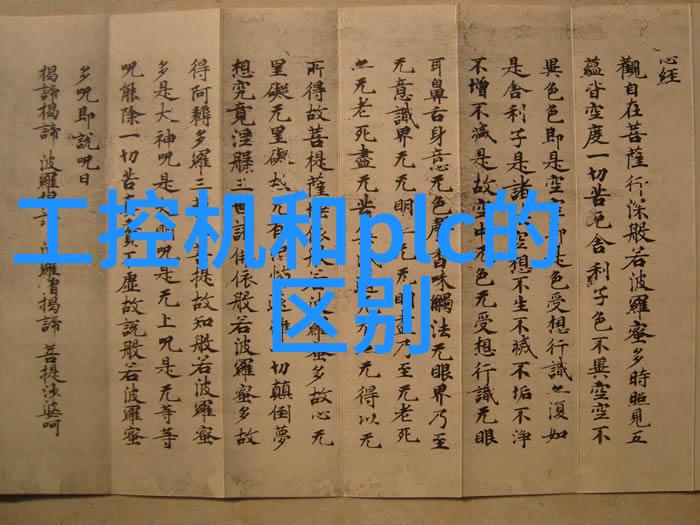 工控机和plc的
区别
心经
觀自在菩薩行深般若波羅蜜多時照見五
蘊皆空度一切苦厄舍利子色不異空空不
異色色即是空空即是色受想行識亦復如
是舍利子是諸法空想不生不滅不垢不淨
不增不減是故空中无色无受想行識无眼
耳鼻舌身意无色聲香味觸法无眼界乃至
无意識界无无明亦无无明盡乃至无老死
亦无老死盡无苦无得以无
所得故菩提薩依般若波羅蜜多故心无
罣礙无罣礙故无有一切顛倒夢
想究竟涅槃三世諸佛依般若波羅蜜多故
得阿耨多羅三菩提故知般若波羅蜜
多是大神呪是呪是无上呪是无等等
呪能除一切苦不虛故說般若波羅蜜
多呪即說呪曰
揭諦揭諦 波羅揭 波羅僧揭諦 菩提沙婆呵